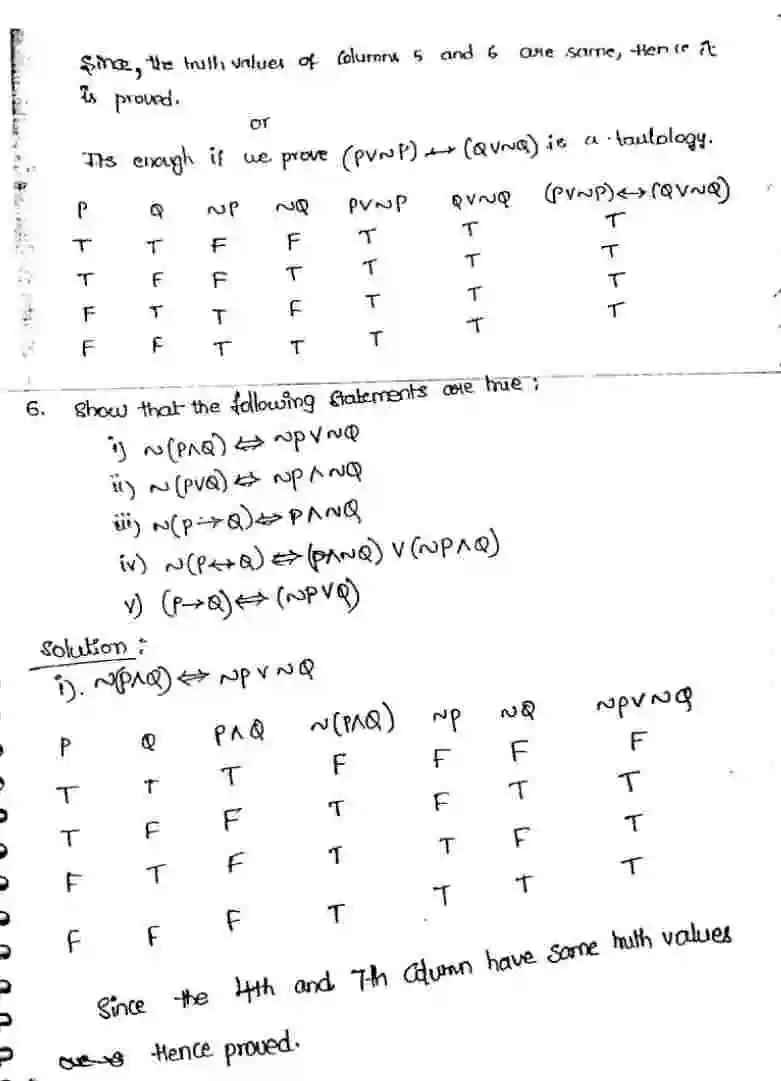 Since, the truth values of Columns 5 and 6 are same, Hence it
is proved.
or
Its enough if we prove (P∨~P) ↔ (Q∨~Q) is a tautology.
P Q ~P ~Q P∨~P Q∨~Q (P∨~P)↔(Q∨~Q)
T T F F T T T
T F F T T T T
F T T F T T T
F F T T T T T
6. Show that the following statements are true :
i) ~(P∧Q) ⇔ ~P∨~Q
ii) ~(P∨Q) ⇔ ~P∧~Q
iii) ~(P→Q) ⇔ P∧~Q
iv) ~(P↔Q) ⇔ (P∧~Q) ∨ (~P∧Q)
v) (P→Q) ⇔ (~P∨Q)
Solution :
i). ~(P∧Q) ⇔ ~P∨~Q
P Q P∧Q ~(P∧Q) ~P ~Q ~P∨~Q
T T T F F F F
T F F T F T T
F T F T T F T
F F F T T T T
Since the 4th and 7th Column have same truth values
Hence proved.